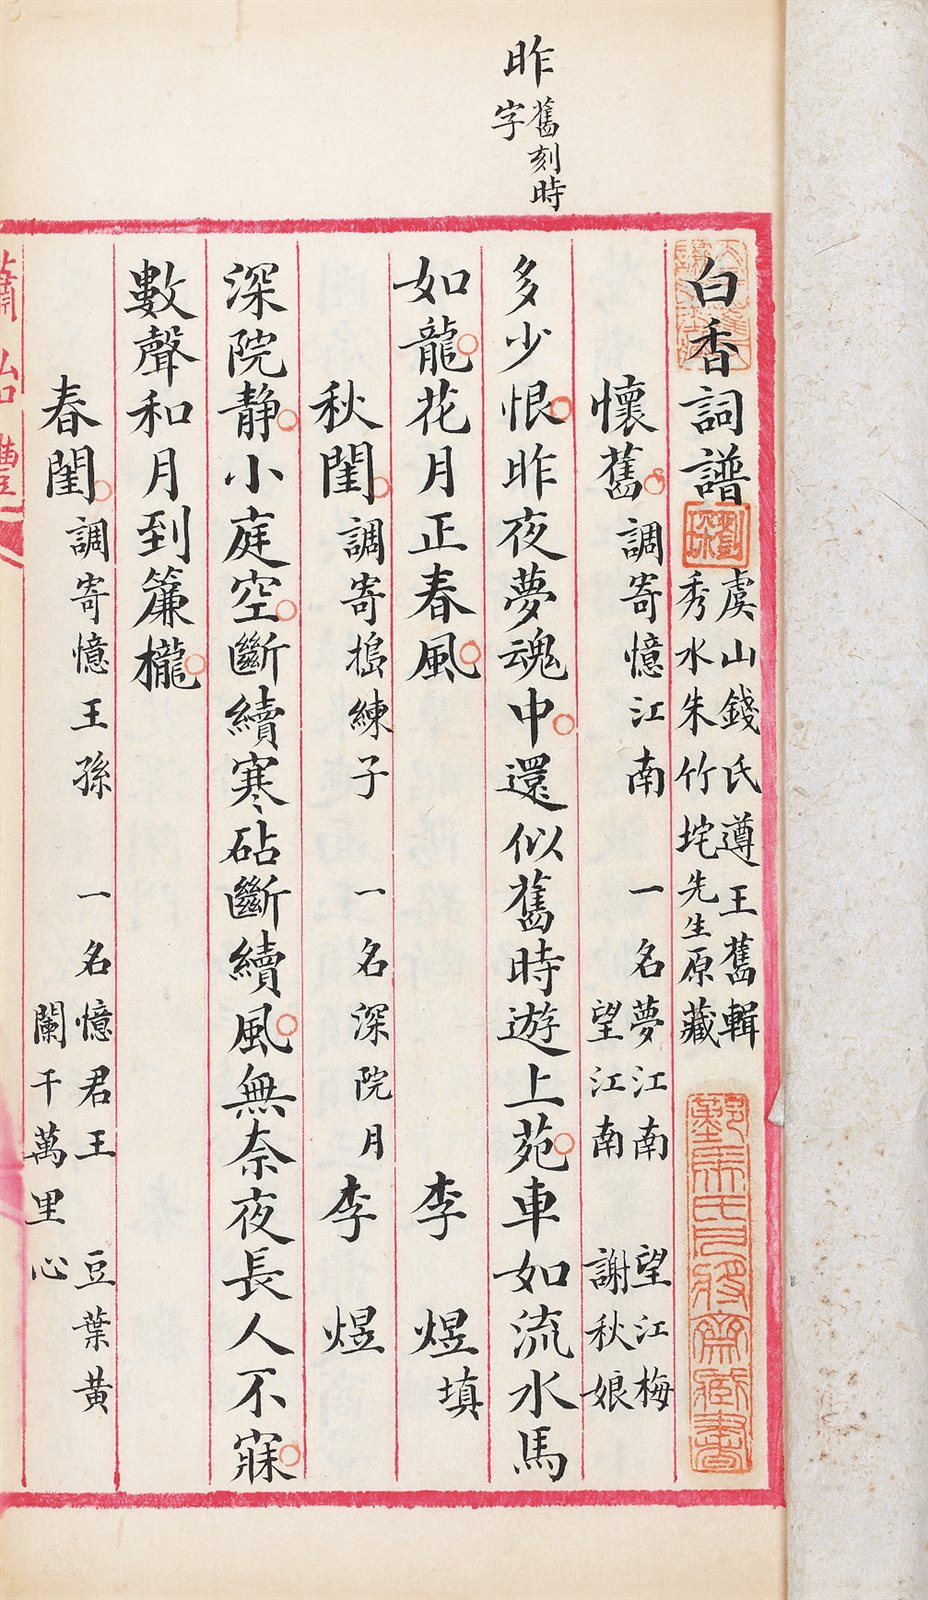 昨舊刻時
字
白香詞譜
虞山錢氏遵王舊輯
秀水朱竹垞先生原藏
懷舊 調寄憶江南 一名夢江南 望江梅
望江南 謝秋娘
多少恨昨夜夢魂中還似舊時遊上苑車如流水馬
如龍花月正春風 李煜填
秋閨 調寄搗練子 一名深院月 李煜
深院靜小庭空斷續寒砧斷續風無奈夜長人不寐
數聲和月到簾櫳
春閨 調寄憶王孫 一名憶君王 豆葉黃
闌干萬里心